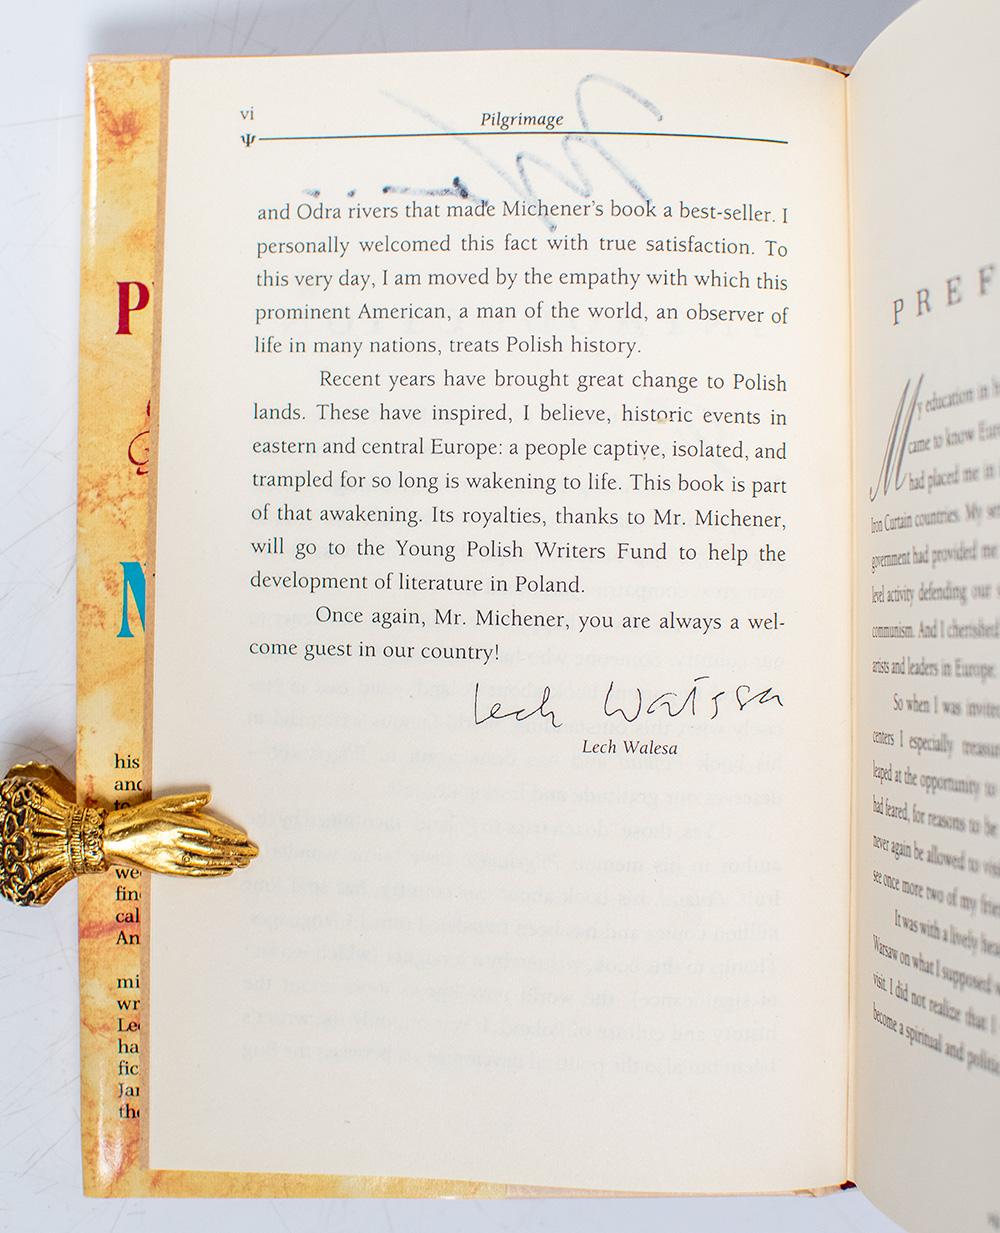 vi
Pilgrimage
and Odra rivers that made Michener's book a best-seller. I
personally welcomed this fact with true satisfaction. To
this very day, I am moved by the empathy with which this
prominent American, a man of the world, an observer of
life in many nations, treats Polish history.
Recent years have brought great change to Polish
lands. These have inspired, I believe, historic events in
eastern and central Europe: a people captive, isolated, and
trampled for so long is wakening to life. This book is part
of that awakening. Its royalties, thanks to Mr. Michener,
will go to the Young Polish Writers Fund to help the
development of literature in Poland.
Once again, Mr. Michener, you are always a wel-
come guest in our country!
Lech Walesa
Lech Walesa
P
N
his
and
to
wee
fin
cal
An
mi
wr
Lee
ha
fic
Jar
the
PREF
My education in h
came to know Eur
had placed me in
Iron Curtain countries. My ser
government had provided me
level activity defending our
communism. And I cherished
artists and leaders in Europe.
So when I was invited
centers I especially treasur
leaped at the opportunity to
had feared, for reasons to be
never again be allowed to visi
see once more two of my frie
It was with a lively hea
Warsaw on what I supposed
visit. I did not realize that I
become a spiritual and politic